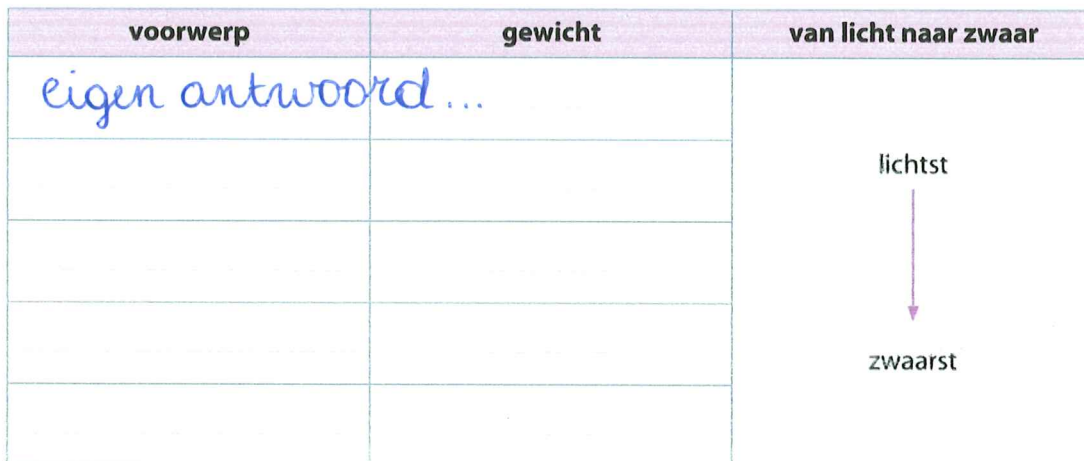 voorwerp gewicht van licht naar zwaar
eigen antwoord...
lichtst
zwaarst